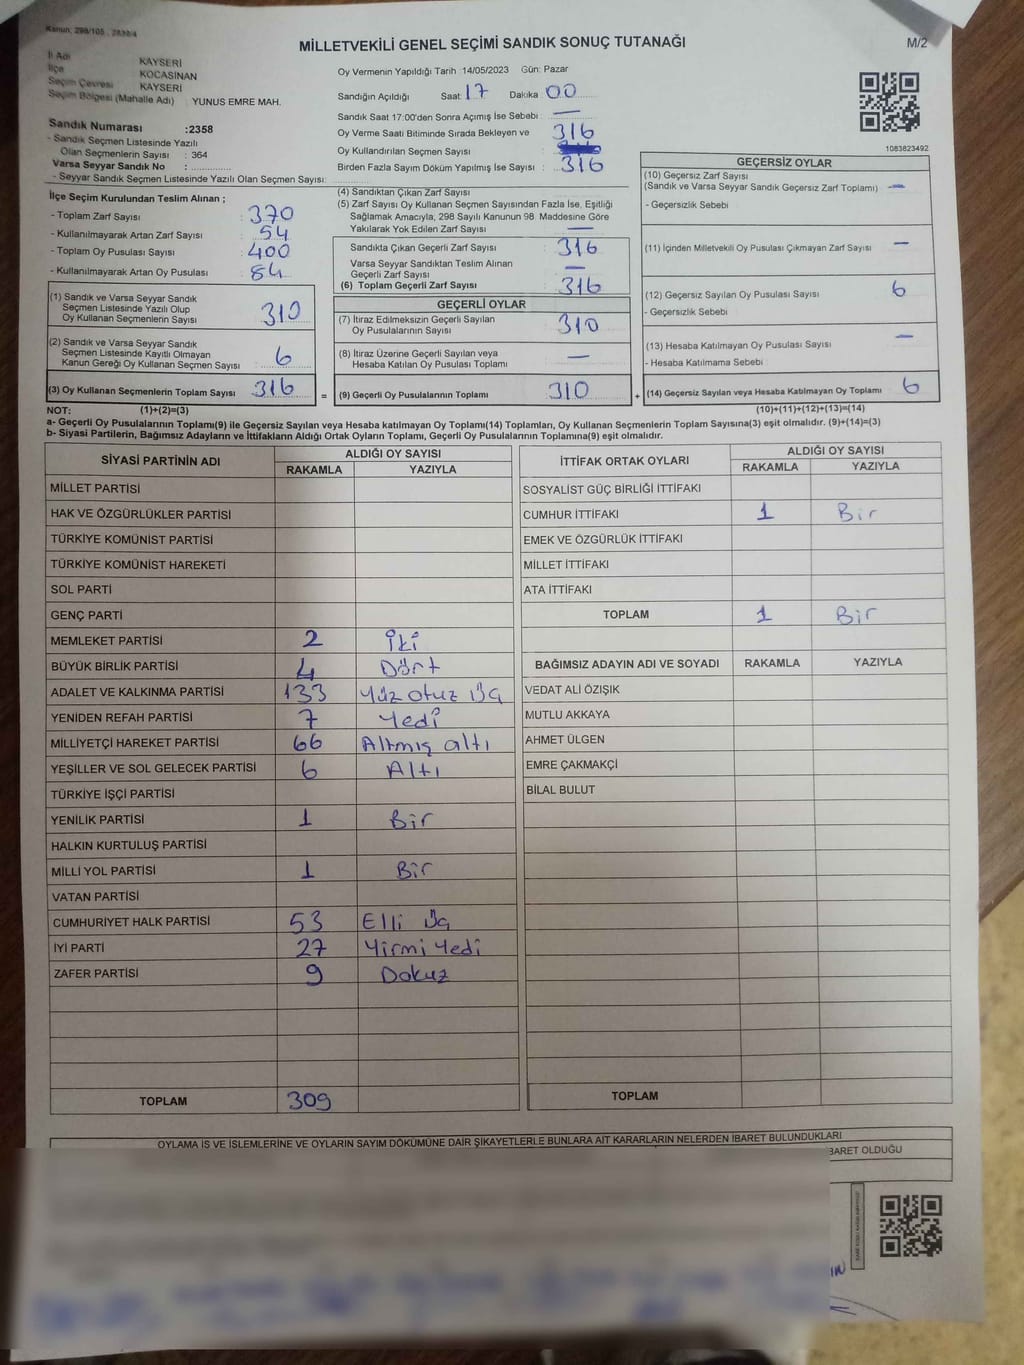 Kanun, 298/105, 2839/4
MİLLETVEKİLİ GENEL SEÇİMİ SANDIK SONUÇ TUTANAĞI
M/2
İl Adı KAYSERİ
İlçe KOCASİNAN
Seçim Çevresi KAYSERİ
Seçim Bölgesi (Mahalle Adı) YUNUS EMRE MAH.
Sandık Numarası :2358
- Sandık Seçmen Listesinde Yazılı
Olan Seçmenlerin Sayısı : 364
Varsa Seyyar Sandık No :
- Seyyar Sandık Seçmen Listesinde Yazılı Olan Seçmen Sayısı:
Oy Vermenin Yapıldığı Tarih :14/05/2023 Gün: Pazar
Sandığın Açıldığı Saat: 17 Dakika: 00
Sandık Saat 17:00'den Sonra Açımış İse Sebebi : —
Oy Verme Saati Bitiminde Sırada Bekleyen ve 316
Oy Kullandırılan Seçmen Sayısı
Birden Fazla Sayım Döküm Yapılmış İse Sayısı : 316
1083823492
İlçe Seçim Kurulundan Teslim Alınan ;
- Toplam Zarf Sayısı : 370
- Kullanılmayarak Artan Zarf Sayısı : 54
- Toplam Oy Pusulası Sayısı : 400
- Kullanılmayarak Artan Oy Pusulası : 84
(1) Sandık ve Varsa Seyyar Sandık
Seçmen Listesinde Yazılı Olup
Oy Kullanan Seçmenlerin Sayısı : 310
(2) Sandık ve Varsa Seyyar Sandık
Seçmen Listesinde Kayıtlı Olmayan
Kanun Gereği Oy Kullanan Seçmen Sayısı : 6
(3) Oy Kullanan Seçmenlerin Toplam Sayısı : 316
(4) Sandıktan Çıkan Zarf Sayısı
(5) Zarf Sayısı Oy Kullanan Seçmen Sayısından Fazla İse, Eşitliği
Sağlamak Amacıyla, 298 Sayılı Kanunun 98. Maddesine Göre
Yakılarak Yok Edilen Zarf Sayısı : —
Sandıkta Çıkan Geçerli Zarf Sayısı : 316
Varsa Seyyar Sandıktan Teslim Alınan
Geçerli Zarf Sayısı : —
(6) Toplam Geçerli Zarf Sayısı : 316
GEÇERLİ OYLAR
(7) İtiraz Edilmeksizin Geçerli Sayılan
Oy Pusulalarının Sayısı : 310
(8) İtiraz Üzerine Geçerli Sayılan veya
Hesaba Katılan Oy Pusulası Toplamı : —
= (9) Geçerli Oy Pusulalarının Toplamı : 310
GEÇERSİZ OYLAR
(10) Geçersiz Zarf Sayısı
(Sandık ve Varsa Seyyar Sandık Geçersiz Zarf Toplamı) : —
- Geçersizlik Sebebi
(11) İçinden Milletvekili Oy Pusulası Çıkmayan Zarf Sayısı : —
(12) Geçersiz Sayılan Oy Pusulası Sayısı : 6
- Geçersizlik Sebebi
(13) Hesaba Katılmayan Oy Pusulası Sayısı : —
- Hesaba Katılmama Sebebi
+ (14) Geçersiz Sayılan veya Hesaba Katılmayan Oy Toplamı : 6
NOT: (1)+(2)=(3) (10)+(11)+(12)+(13)=(14)
a- Geçerli Oy Pusulalarının Toplamı(9) ile Geçersiz Sayılan veya Hesaba katılmayan Oy Toplamı(14) Toplamları, Oy Kullanan Seçmenlerin Toplam Sayısına(3) eşit olmalıdır. (9)+(14)=(3)
b- Siyasi Partilerin, Bağımsız Adayların ve İttifakların Aldığı Ortak Oyların Toplamı, Geçerli Oy Pusulalarının Toplamına(9) eşit olmalıdır.
SİYASİ PARTİNİN ADI ALDIĞI OY SAYISI
RAKAMLA YAZIYLA
MİLLET PARTİSİ
HAK VE ÖZGÜRLÜKLER PARTİSİ
TÜRKİYE KOMÜNİST PARTİSİ
TÜRKİYE KOMÜNİST HAREKETİ
SOL PARTİ
GENÇ PARTİ
MEMLEKET PARTİSİ 2 İki
BÜYÜK BİRLİK PARTİSİ 4 Dört
ADALET VE KALKINMA PARTİSİ 133 Yüz otuz üç
YENİDEN REFAH PARTİSİ 7 Yedi
MİLLİYETÇİ HAREKET PARTİSİ 66 Altmış altı
YEŞİLLER VE SOL GELECEK PARTİSİ 6 Altı
TÜRKİYE İŞÇİ PARTİSİ
YENİLİK PARTİSİ 1 Bir
HALKIN KURTULUŞ PARTİSİ
MİLLİ YOL PARTİSİ 1 Bir
VATAN PARTİSİ
CUMHURİYET HALK PARTİSİ 53 Elli üç
İYİ PARTİ 27 Yirmi Yedi
ZAFER PARTİSİ 9 Dokuz
TOPLAM 309
İTTİFAK ORTAK OYLARI ALDIĞI OY SAYISI
RAKAMLA YAZIYLA
SOSYALİST GÜÇ BİRLİĞİ İTTİFAKI
CUMHUR İTTİFAKI 1 Bir
EMEK VE ÖZGÜRLÜK İTTİFAKI
MİLLET İTTİFAKI
ATA İTTİFAKI
TOPLAM 1 Bir
BAĞIMSIZ ADAYIN ADI VE SOYADI RAKAMLA YAZIYLA
VEDAT ALİ ÖZIŞIK
MUTLU AKKAYA
AHMET ÜLGEN
EMRE ÇAKMAKÇİ
BİLAL BULUT
TOPLAM
OYLAMA İŞ VE İŞLEMLERİNE VE OYLARIN SAYIM DÖKÜMÜNE DAİR ŞİKAYETLERLE BUNLARA AİT KARARLARIN NELERDEN İBARET BULUNDUKLARI
BARET OLDUĞU